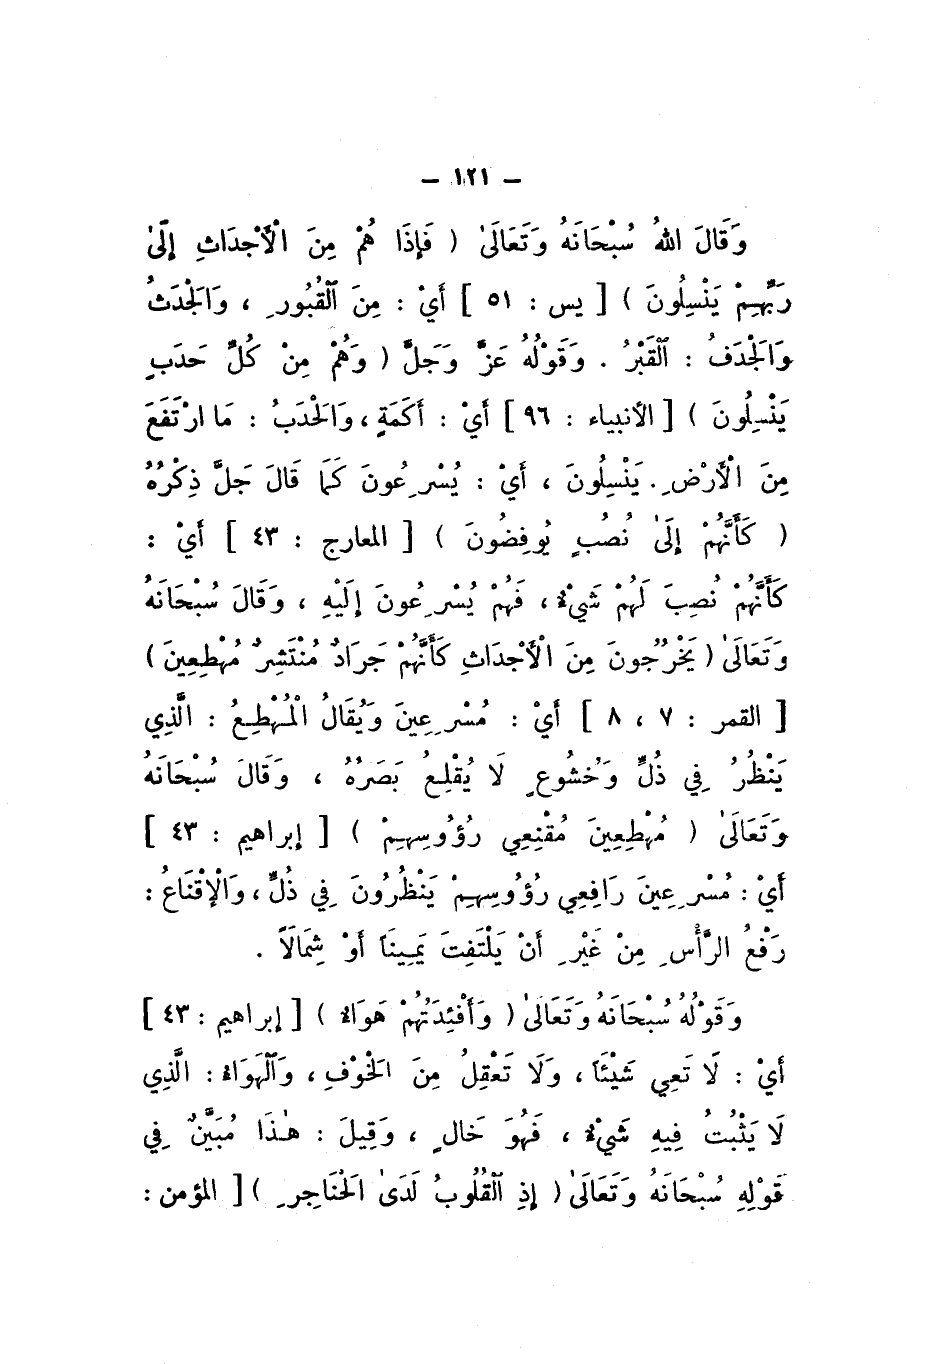 – ١٢١ –
وَقَالَ اللهُ سُبْحَانَهُ وَتَعَالَىٰ ( فَإِذَا هُمْ مِنَ الْأَجْدَاثِ إِلَىٰ
رَبِّهِمْ يَنْسِلُونَ ) [ يس : ٥١ ] أَيْ : مِنَ ٱلْقُبُورِ ، وَالْجَدَثُ
وَالْجَدَفُ : ٱلْقَبْرُ . وَقَوْلُهُ عَزَّ وَجَلَّ ( وَهُمْ مِنْ كُلِّ حَدَبٍ
يَنْسِلُونَ ) [ الأنبياء : ٩٦ ] أَيْ : أَكَمَةٍ ، وَالْحَدَبُ : مَا ارْتَفَعَ
مِنَ الْأَرْضِ . يَنْسِلُونَ ، أَيْ : يُسْرِعُونَ كَمَا قَالَ جَلَّ ذِكْرُهُ
( كَأَنَّهُمْ إِلَىٰ نُصُبٍ يُوفِضُونَ ) [ المعارج : ٤٣ ] أَيْ :
كَأَنَّهُمْ نُصِبَ لَهُمْ شَيْءٌ ، فَهُمْ يُسْرِعُونَ إِلَيْهِ ، وَقَالَ سُبْحَانَهُ
وَتَعَالَىٰ ( يَخْرُجُونَ مِنَ الْأَجْدَاثِ كَأَنَّهُمْ جَرَادٌ مُنْتَشِرٌ مُهْطِعِينَ )
[ القمر : ٧ ، ٨ ] أَيْ : مُسْرِعِينَ وَيُقَالُ الْمُهْطِعُ : الَّذِي
يَنْظُرُ فِي ذُلٍّ وَخُشُوعٍ لَا يُقْلِعُ بَصَرُهُ ، وَقَالَ سُبْحَانَهُ
وَتَعَالَىٰ ( مُهْطِعِينَ مُقْنِعِي رُؤُوسِهِمْ ) [ إبراهيم : ٤٣ ]
أَيْ : مُسْرِعِينَ رَافِعِي رُؤُوسِهِمْ يَنْظُرُونَ فِي ذُلٍّ ، وَالْإِقْنَاعُ :
رَفْعُ الرَّأْسِ مِنْ غَيْرِ أَنْ يَلْتَفِتَ يَمِينَاً أَوْ شِمَالَاً .
وَقَوْلُهُ سُبْحَانَهُ وَتَعَالَىٰ ( وَأَفْئِدَتُهُمْ هَوَاءٌ ) [ إبراهيم : ٤٣ ]
أَيْ : لَا تَعِي شَيْئَاً ، وَلَا تَعْقِلُ مِنَ الخَوْفِ ، وَٱلْهَوَاءُ : الَّذِي
لَا يَثْبُتُ فِيهِ شَيْءٌ ، فَهُوَ خَالٍ ، وَقِيلَ : هٰذَا مُبَيَّنٌ فِي
قَوْلِهِ سُبْحَانَهُ وَتَعَالَىٰ ( إِذِ ٱلْقُلُوبُ لَدَىٰ الْحَنَاجِرِ ) [ المؤمن :